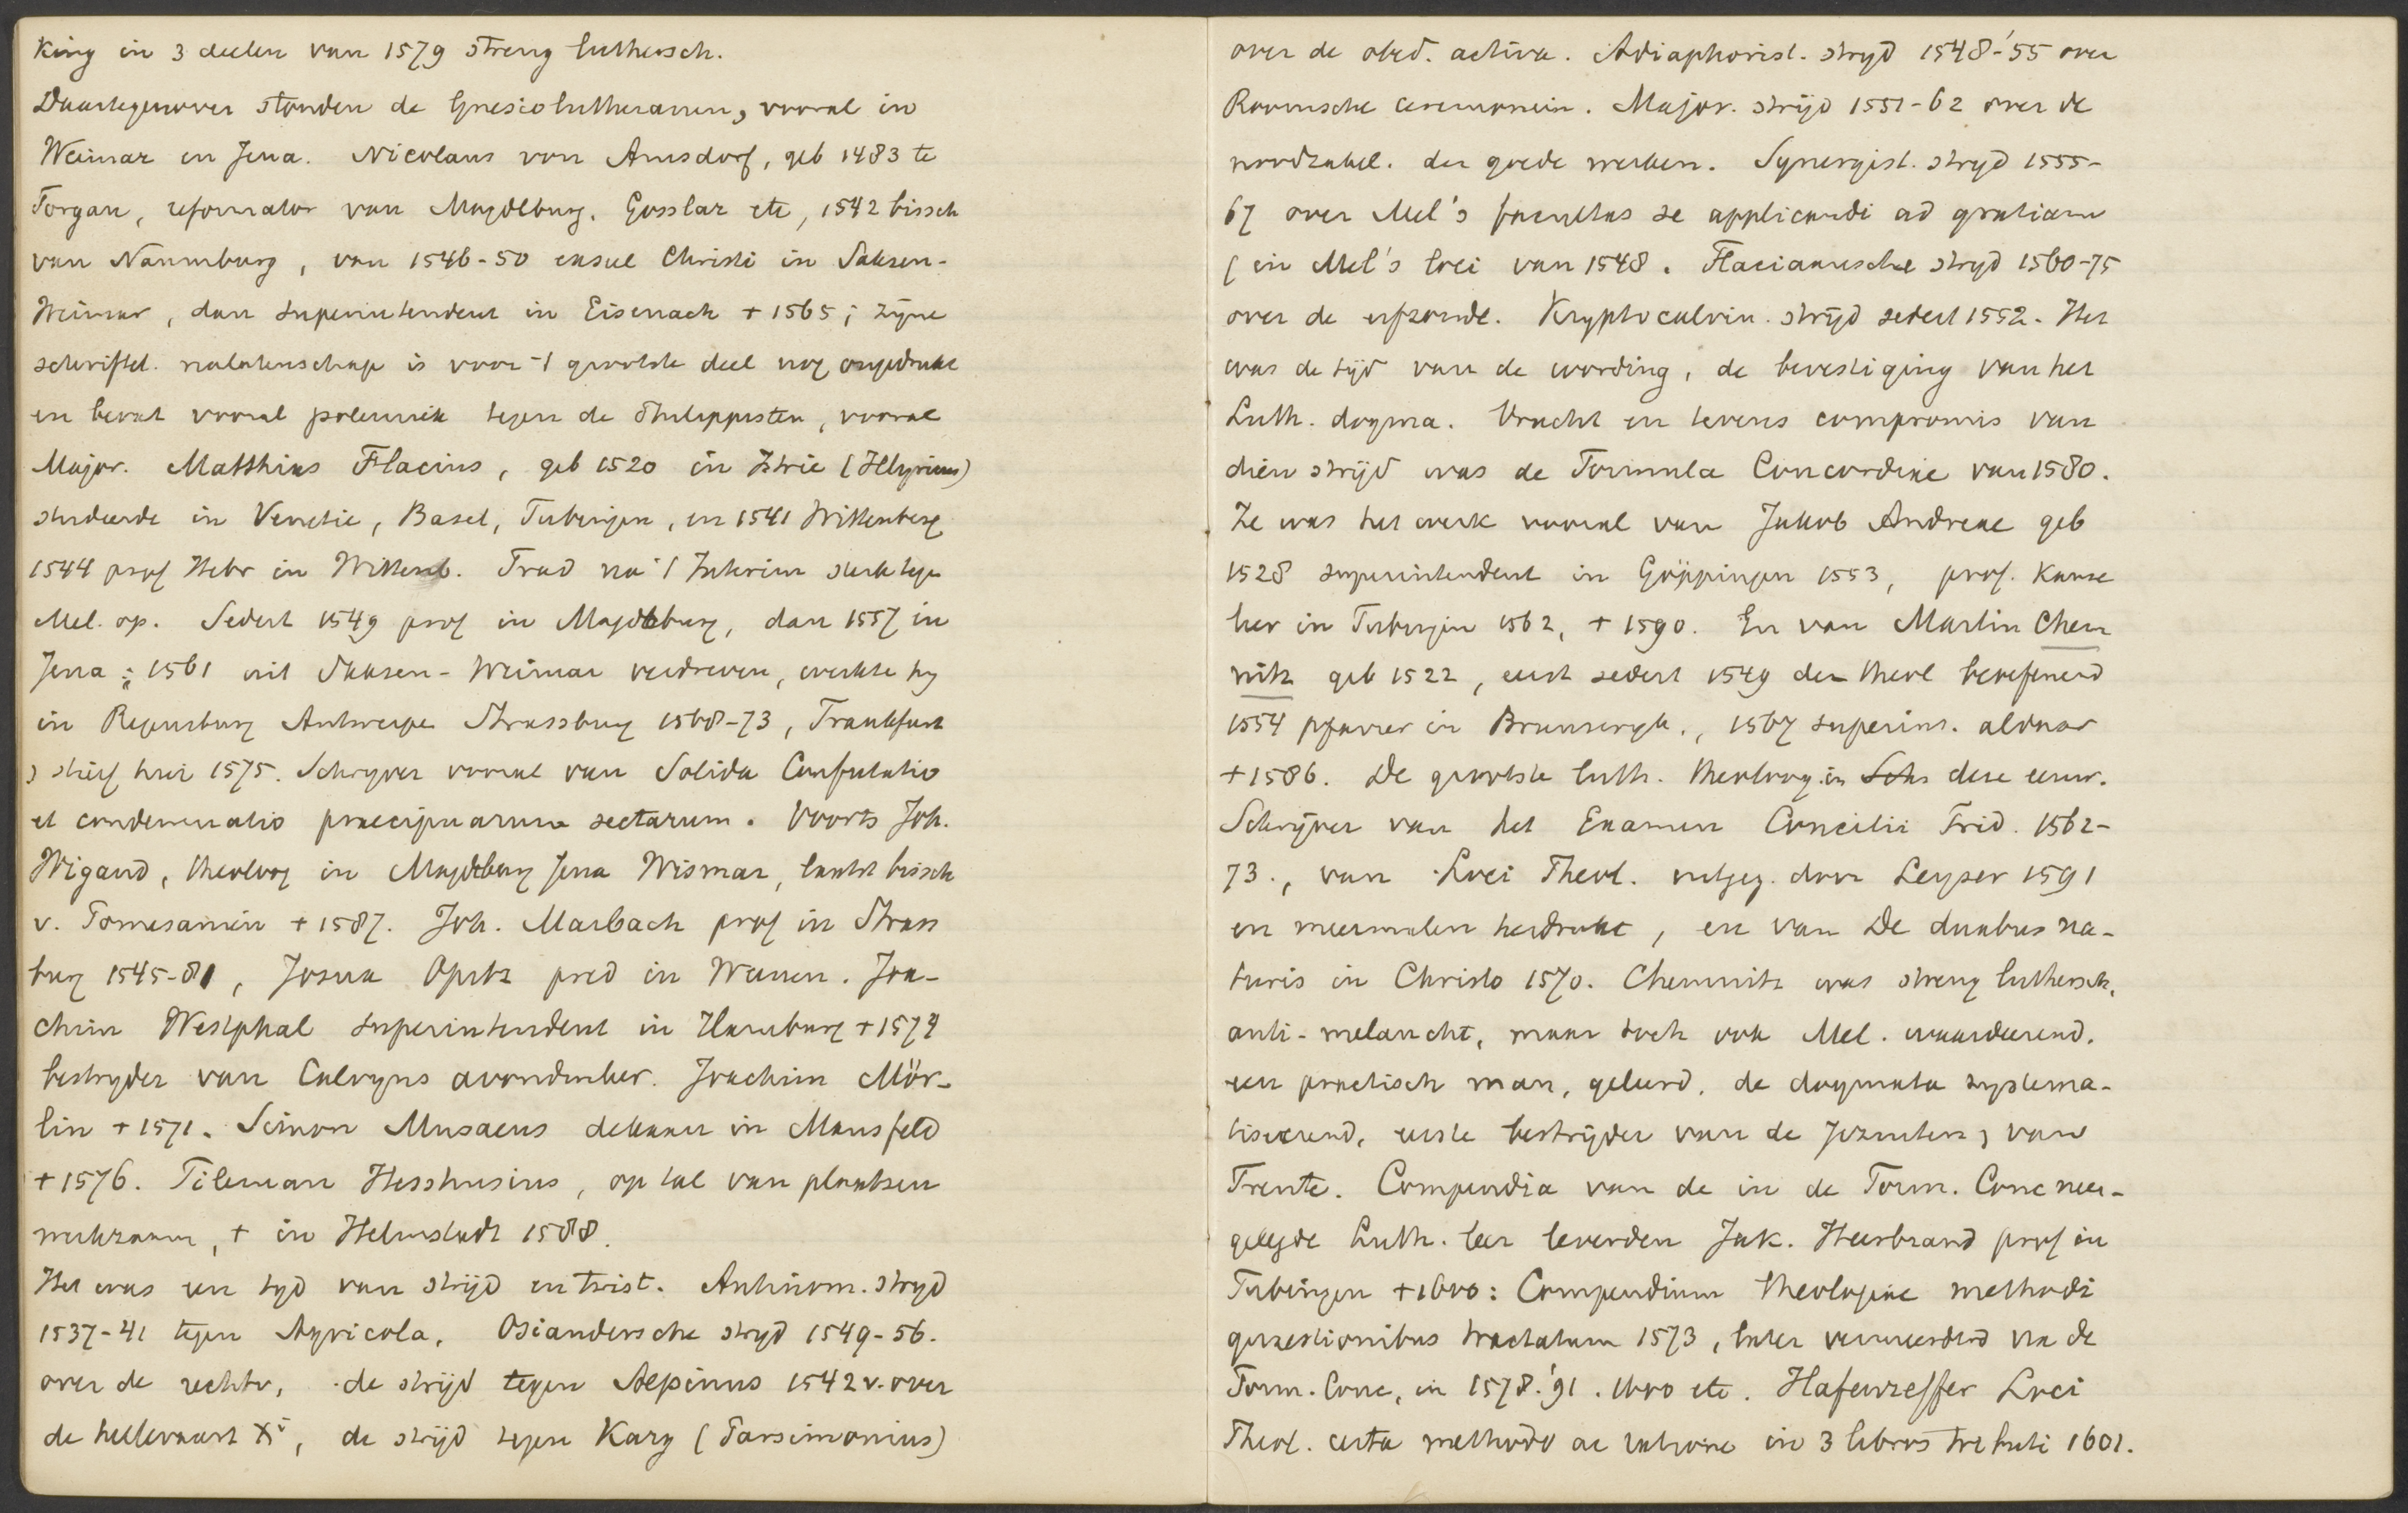 King in 3 deelen van 1579 streng luthersch.
Daartegenover stonden de Gnesiolutheranen, vooral in
Weimar en Jena. Nicolaus von Amsdorf, geb 1483 te
Torgau, reformator van Magdeburg, Gosslar etc, 1542 bissch
van Naumburg, van 1546-50 exsul Christi in Saksen-
Weimar, dan superintendent in Eisenach + 1565; zijne
schriftel. nalatenschap is voor 't grootste deel nog ongedrukt
en bevat vooral polemiek tegen de Philippisten, vooral
Major. Matthias Flacius, geb 1520 in Istrie (Illyricus)
studeerde in Venetie, Basel, Tubingen, en 1541 Wittenberg
1544 prof Hebr in Wittenb. Trad na 't Interim sterk tegen
Mel. op. Sedert 1549 prof in Magdeburg, dan 1557 in
Jena; 1561 uit Saksen-Weimar verdreven, werkte hy
in Regensburg Antwerpen Strassburg 1568-73, Frankfurt
stierf hier 1575. Schryver vooral van Solida Confutatio
et condemnatio praecipuarum sectarum. Voorts Joh.
Wigand, theoloog in Magdeburg Jena Wismar, laatst bissch
v. Pomesanien + 1587. Joh. Marbach prof in Strass
burg 1545-81, Josua Opitz pred in Weenen. Joa-
chim Westphal superintendent in Hamburg + 1574
bestryder van Calvyns avondmlleer. Joachim Mör-
lin + 1571. Simon Musaeus dekaan in Mansfeld
+ 1576. Tileman Hesshusius, op tal van plaatsen
werkzaam, + in Helmstadt 1588.
Het was een tyd van strijd en twist. Antinom. stryd
1537-41 tegen Agricola, Osiandersche stryd 1549-56.
over de rechtv, de strijd tegen Aepinus 1542 v. over
de hellevaart Xi, de strijd tegen Karg (Parsimonius)
over de obed. activa. Adiaphorist. stryd 1548-'55 over
Roomsche ceremonien. Major. strijd 1551-62 over de
noodzakel. der goede werken. Synergist. stryd 1555-
67 over Mel's facultas se applicandi ad gratiam
(in Mel's loci van 1548. Flaciaansche stryd 1560-75
over de erfzonde. Kryptocalvin. strijd sedert 1552. Het
was de tijd van de wording, de bevestiging van het
Luth. dogma. Vrucht en tevens compromis van
dien strijd was de Formula Concordiae van 1580.
Ze was het werk vooral van Jakob Andreae geb
1528 superintendent in Göppingen 1553, prof. kanse
lier in Tubingen 1562, + 1590. En van Martin Chem
nitz geb 1522, eerst sedert 1549 de theol beoefenend
1554 pfarrer in Brunswyk., 1567 superint. aldaar
+ 1586. De grootste luth. theoloog in deze eeuw.
Schrijver van het Examen Concilii Trid. 1562-
73., van Loci Theol. uitgeg. door Leyser 1591
en meermalen herdrukt, en van De duabus na-
turis in Christo 1570. Chemnitz was streng luthersch,
anti-melancht, maar toch ook Mel. waardeerend.
een practisch man, geleerd, de dogmata systema-
tiseerend, eerste bestrijder van de Jezuiten, van
Trente. Compendia van de in de Form. Conc neer-
gelegde Luth. leer leverden Jak. Heerbrand prof in
Tubingen + 1600: Compendium theologiae methodi
quaestionibus tractatum 1573, later vermeerderd na de
Form. Conc, in 1578. '91. 1600 etc. Hafenreffer Loci
Theol. certa methodo ac ratione in 3 libros tributi 1601.